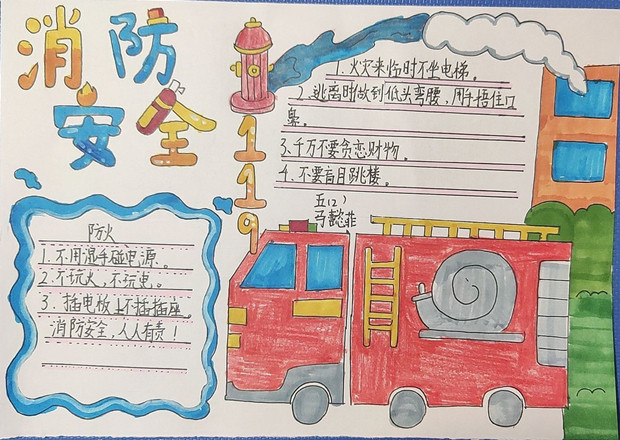 消防
安全
119
1. 火灾来临时不坐电梯。
2. 逃离时做到低头弯腰,用手捂住口
鼻。
3. 千万不要贪恋财物。
4. 不要盲目跳楼。
五(2)
马懿菲
防火
1. 不用湿手碰电源。
2. 不玩火,不玩电。
3. 插电板上不插插座。
消防安全,人人有责!